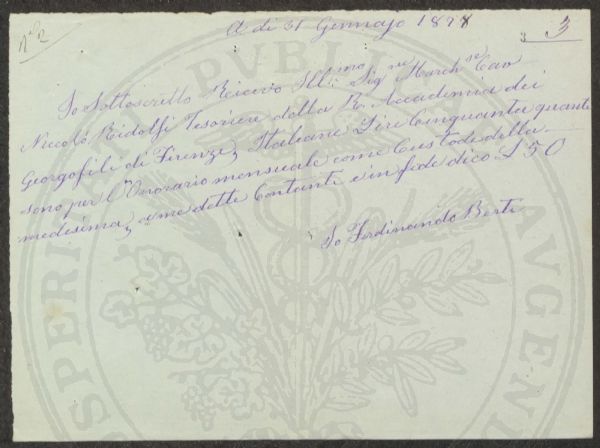 A di 31 Gennajo 1878
3
N° 2
Io Sottoscritto Ricevo Ill:mo Sigre Marchse Cav
Niccolò Ridolfi Tesoriere della R. Accademia dei
Georgofili di Firenze, Italiane Lire Cinquanta quante
sono per l'Onorario mensuale come Custode della
medesima, a me dette Contanti e in fede dico £ 50
Io Ferdinando Berti
PVBLICAE
PROSPERITATI AVGENDAE